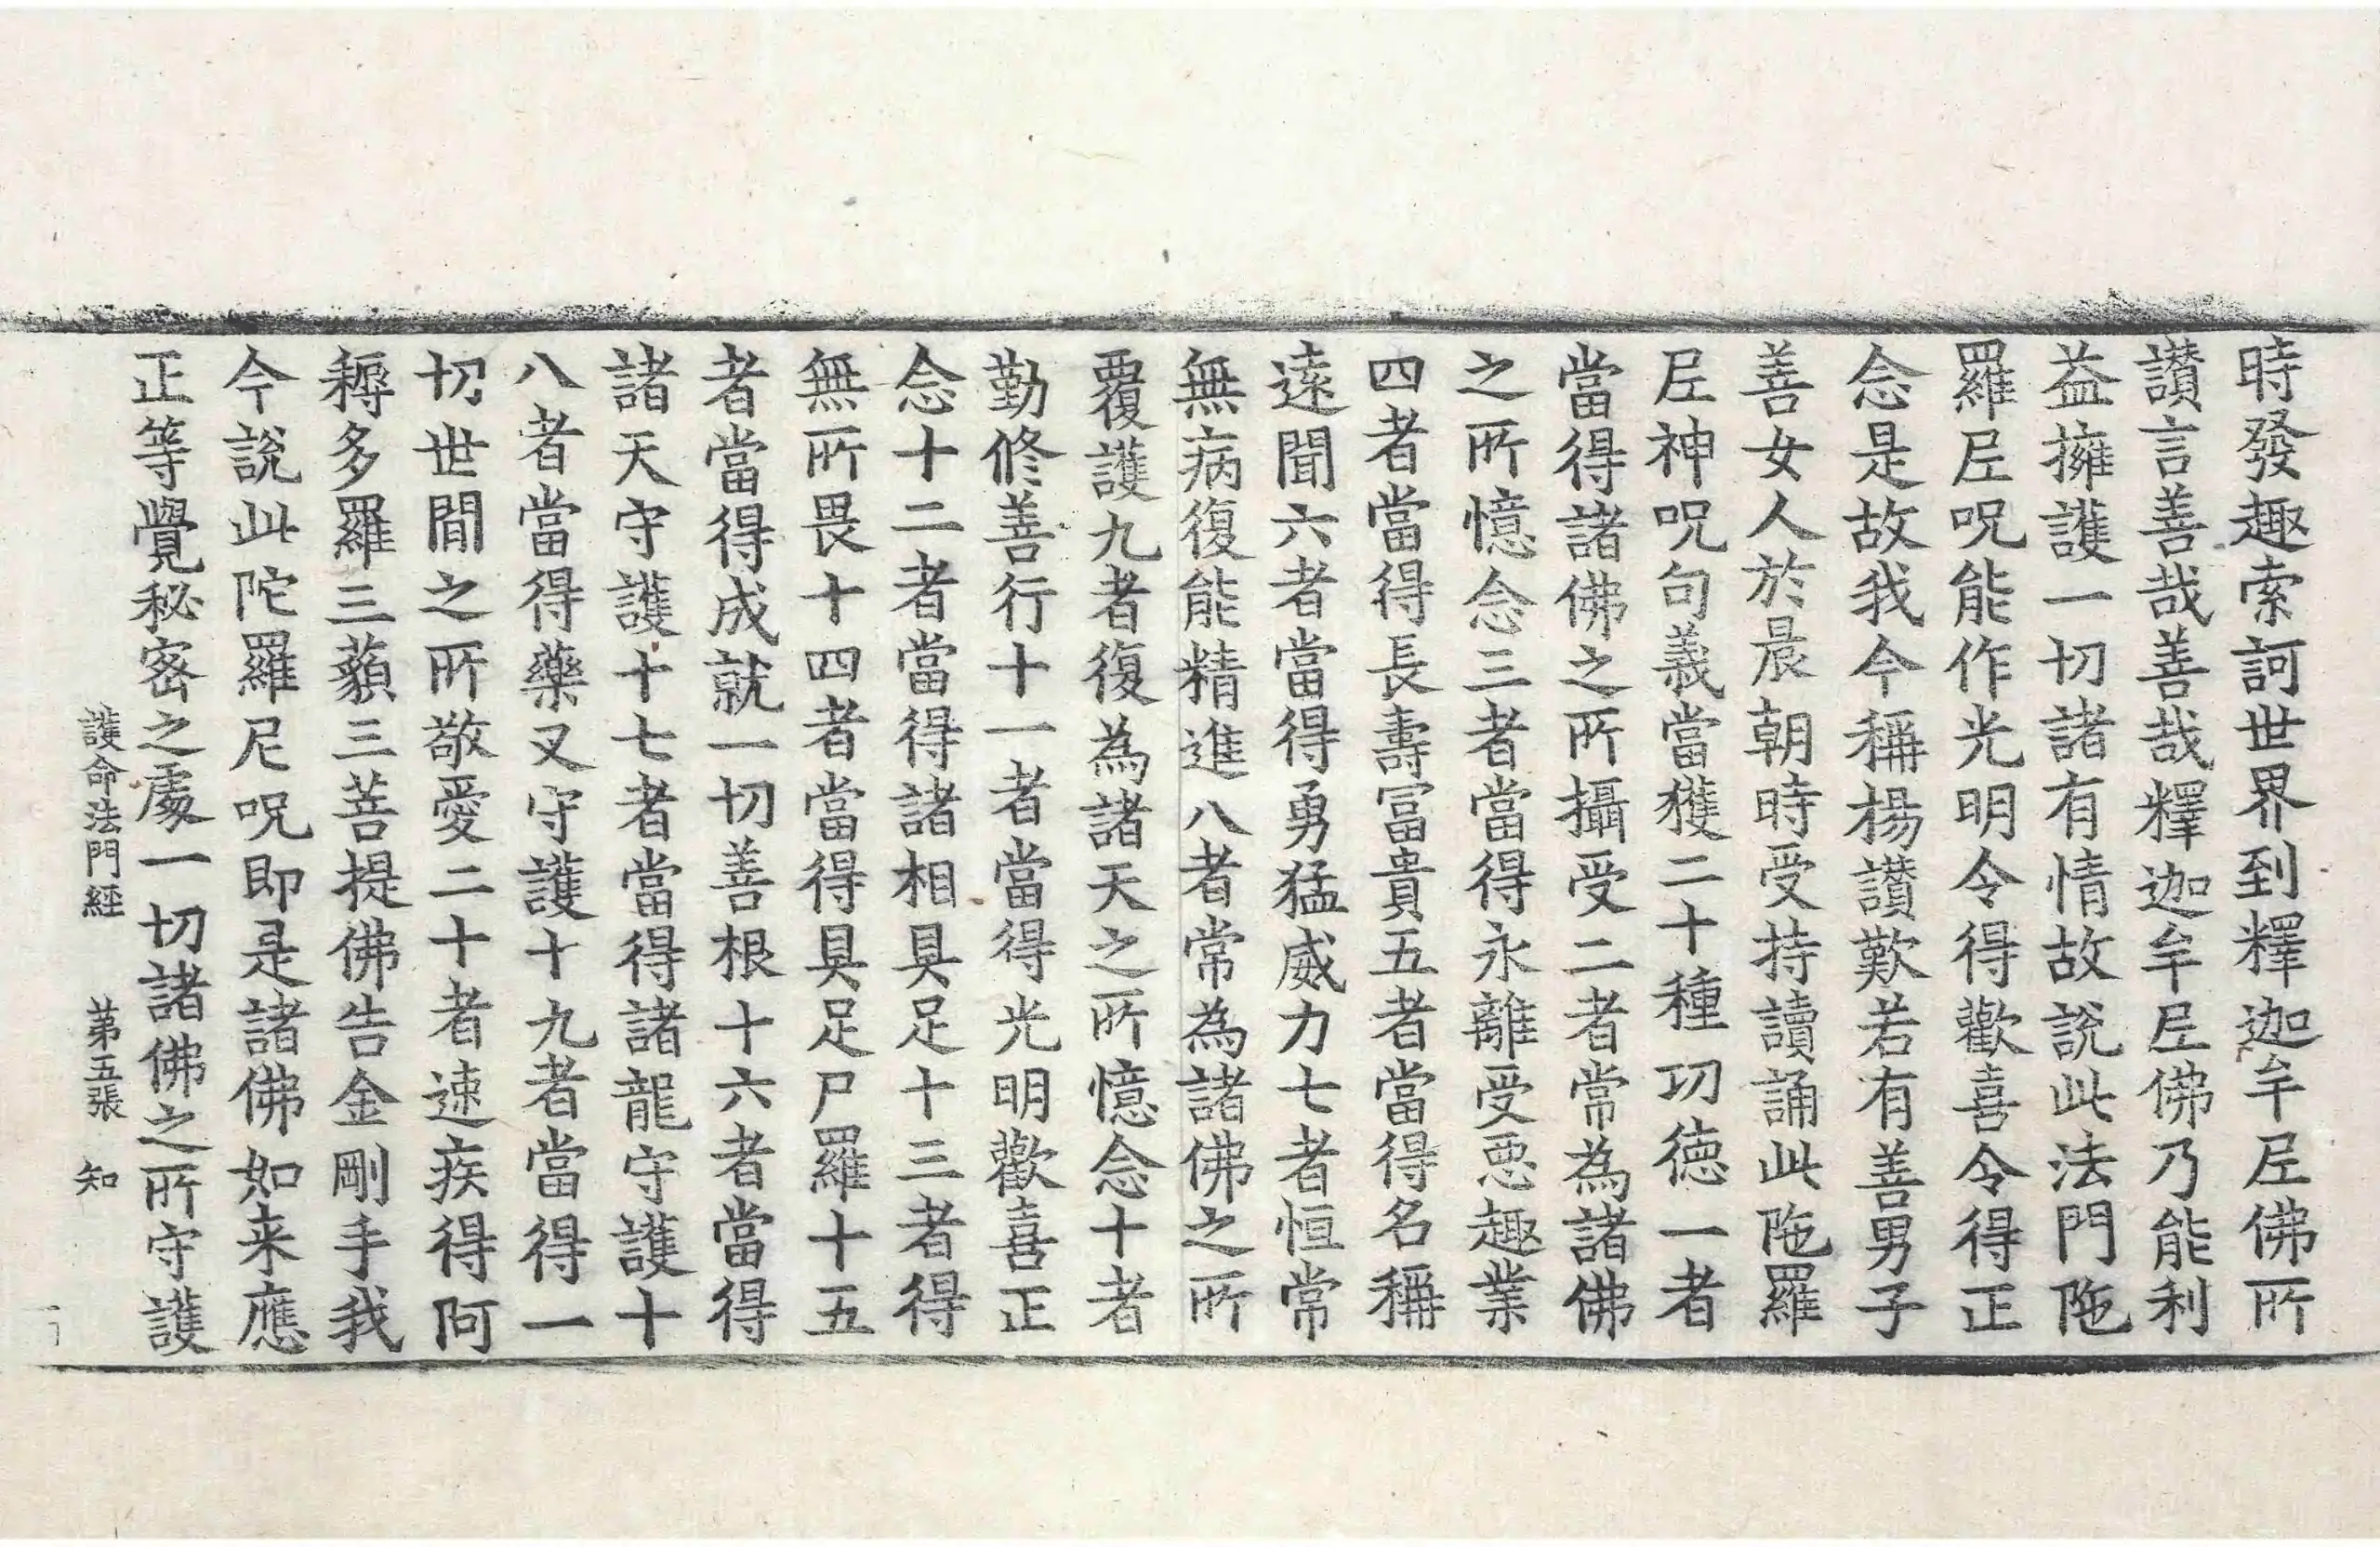 時發趣索訶世界到釋迦牟𡰱佛所
讃言善哉善哉釋迦牟𡰱佛乃能利
益擁護一切諸有情故說此法門陁
羅𡰱呪能作光明令得歡喜令得正
念是故我今稱揚讃歎若有善男子
善女人於晨朝時受持讀誦此陁羅
𡰱神呪句義當獲二十種功徳一者
當得諸佛之所攝受二者常為諸佛
之所憶念三者當得永離受悪趣業
四者當得長壽冨貴五者當得名稱
逺聞六者當得勇猛威力七者恒常
無病復能精進八者常為諸佛之所
覆護九者復為諸天之所憶念十者
勤修善行十一者當得光明歡喜正
念十二者當得諸相具足十三者得
無所畏十四者當得具足尸羅十五
者當得成就一切善根十六者當得
諸天守護十七者當得諸龍守護十
八者當得藥叉守護十九者當得一
切世間之所敬愛二十者速疾得阿
耨多羅三藐三菩提佛告金剛手我
今說此陀羅尼呪即是諸佛如来應
正等覺秘密之處一切諸佛之所守護
護命法門經 苐五張 知